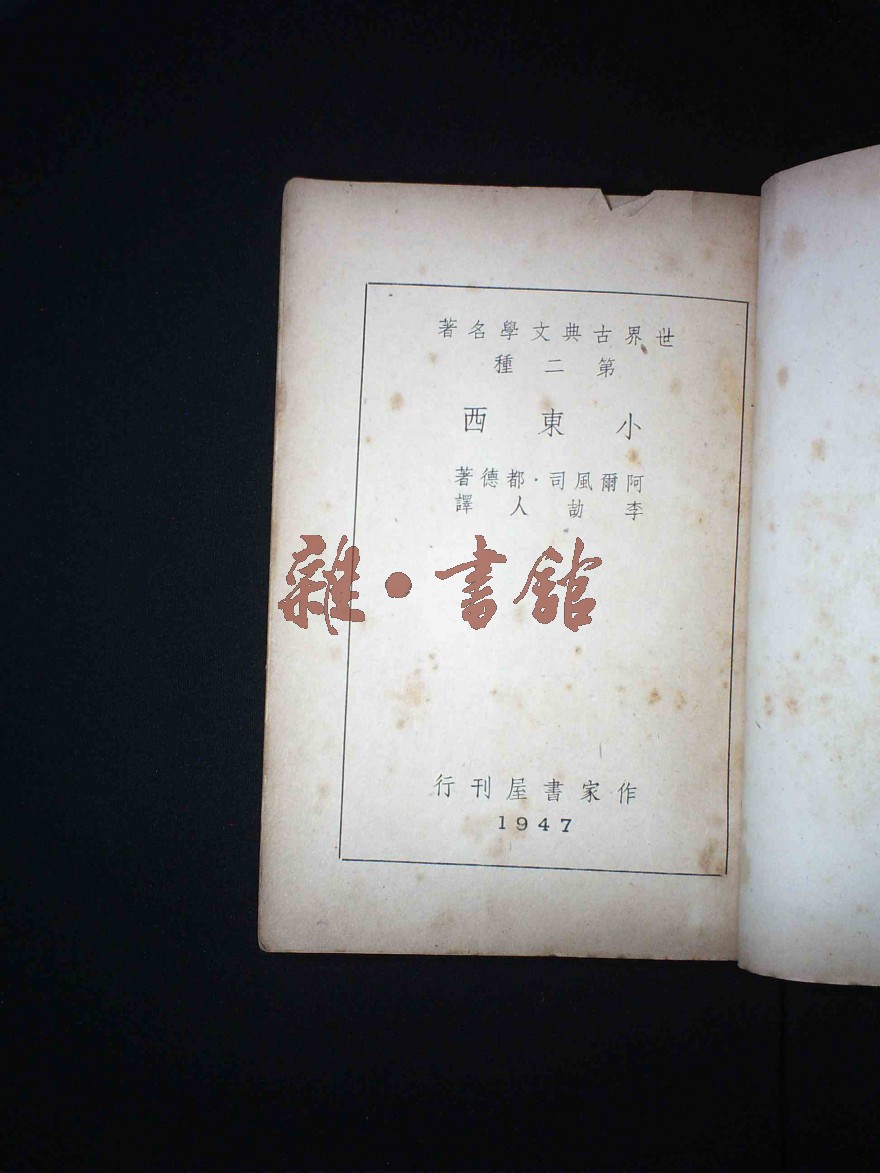 世界古典文學名著
第二種
小東西
阿爾風司·都德著
李劼人譯
雜·書館
作家書屋刊行
1947